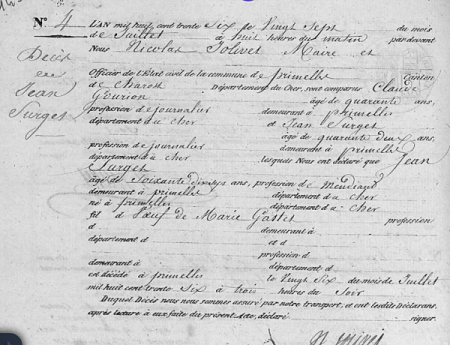 N.° 4 L'AN mil huit cent trente Six le Vingt Sept du mois
de Juillet à huit heures du matin par-devant
Décès
de
Jean
Surget
Nous Nicolas Jolivet Maire et
Officier de l'Etat civil de la commune de primelles Canton
de Charost Département du Cher, sont comparus Claude
âgé de quarante ans,
profession de journalier demeurant à primelles
département du cher et Jean Surget
âgé de quarante deux ans,
profession de journalier demeurant à primelles
département du cher lesquels Nous ont déclaré que Jean
Surget
âgé de Soixante ans, profession de Mendiant
demeurant à primelles département du Cher
né à primelles département du Cher
fil d Vœuf de Marie profession
d demeurant à
département d et d
profession d
demeurant à département d
est décédé à primelles le Vingt Six du mois de Juillet
mil huit cent trente Six à trois heures du Soir
Duquel Décès nous nous sommes assuré par notre transport, et ont lesdits Déclarans,
après lecture à eux faite du présent Acte, déclaré signer.